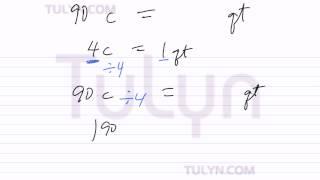 TULYN.COM
90 c = qt
4c = 1 qt
÷4
90 c ÷4 = qt
Tulyn
)90
TULYN.COM